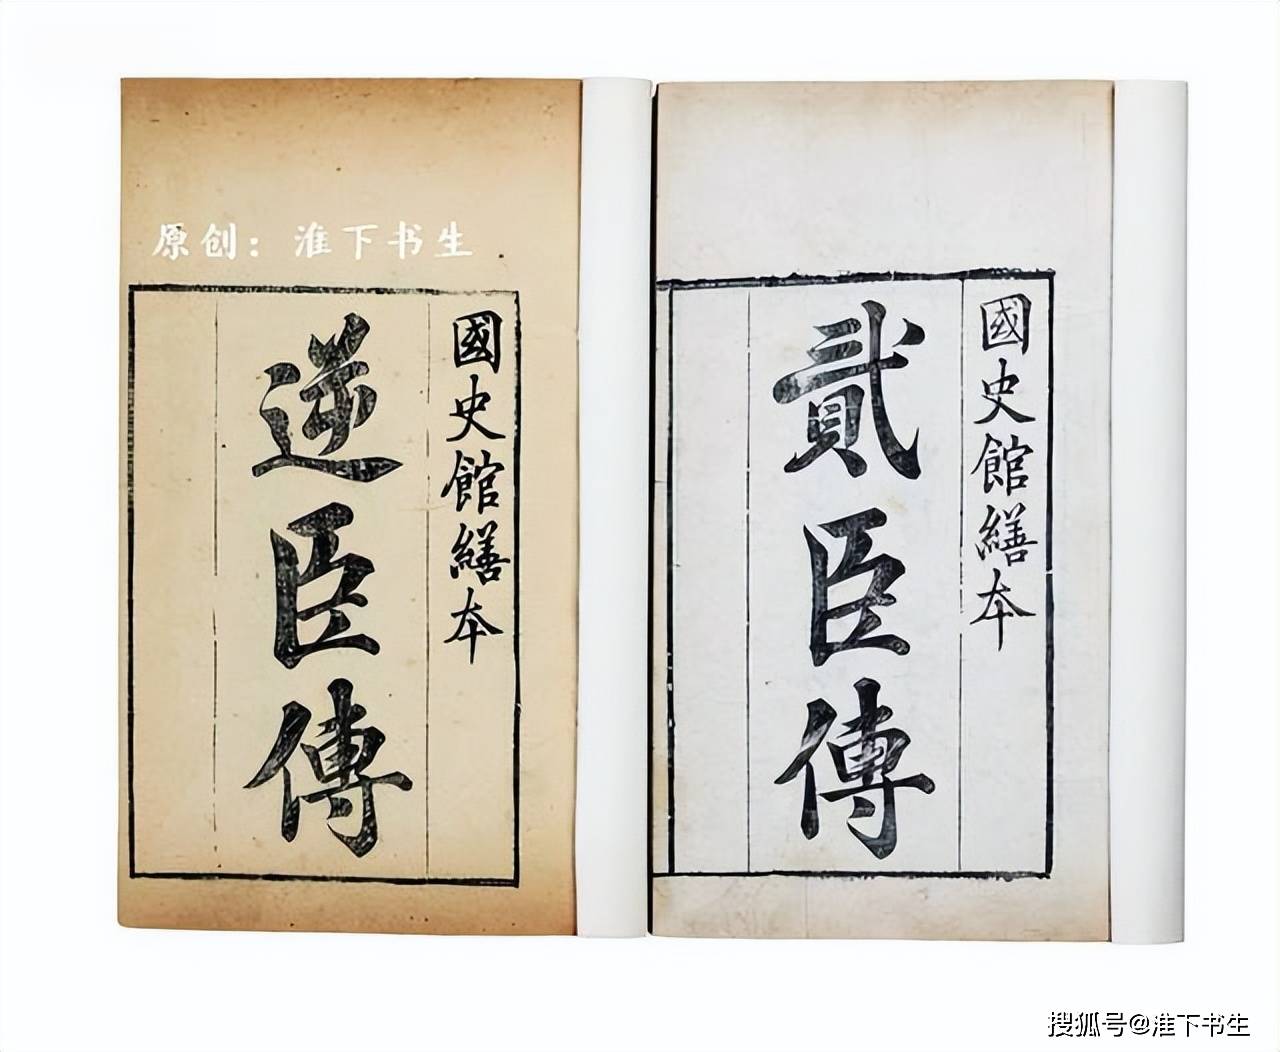 原创：淮下书生
國史館繕本
逆臣傳
國史館繕本
貳臣傳
搜狐号@淮下书生